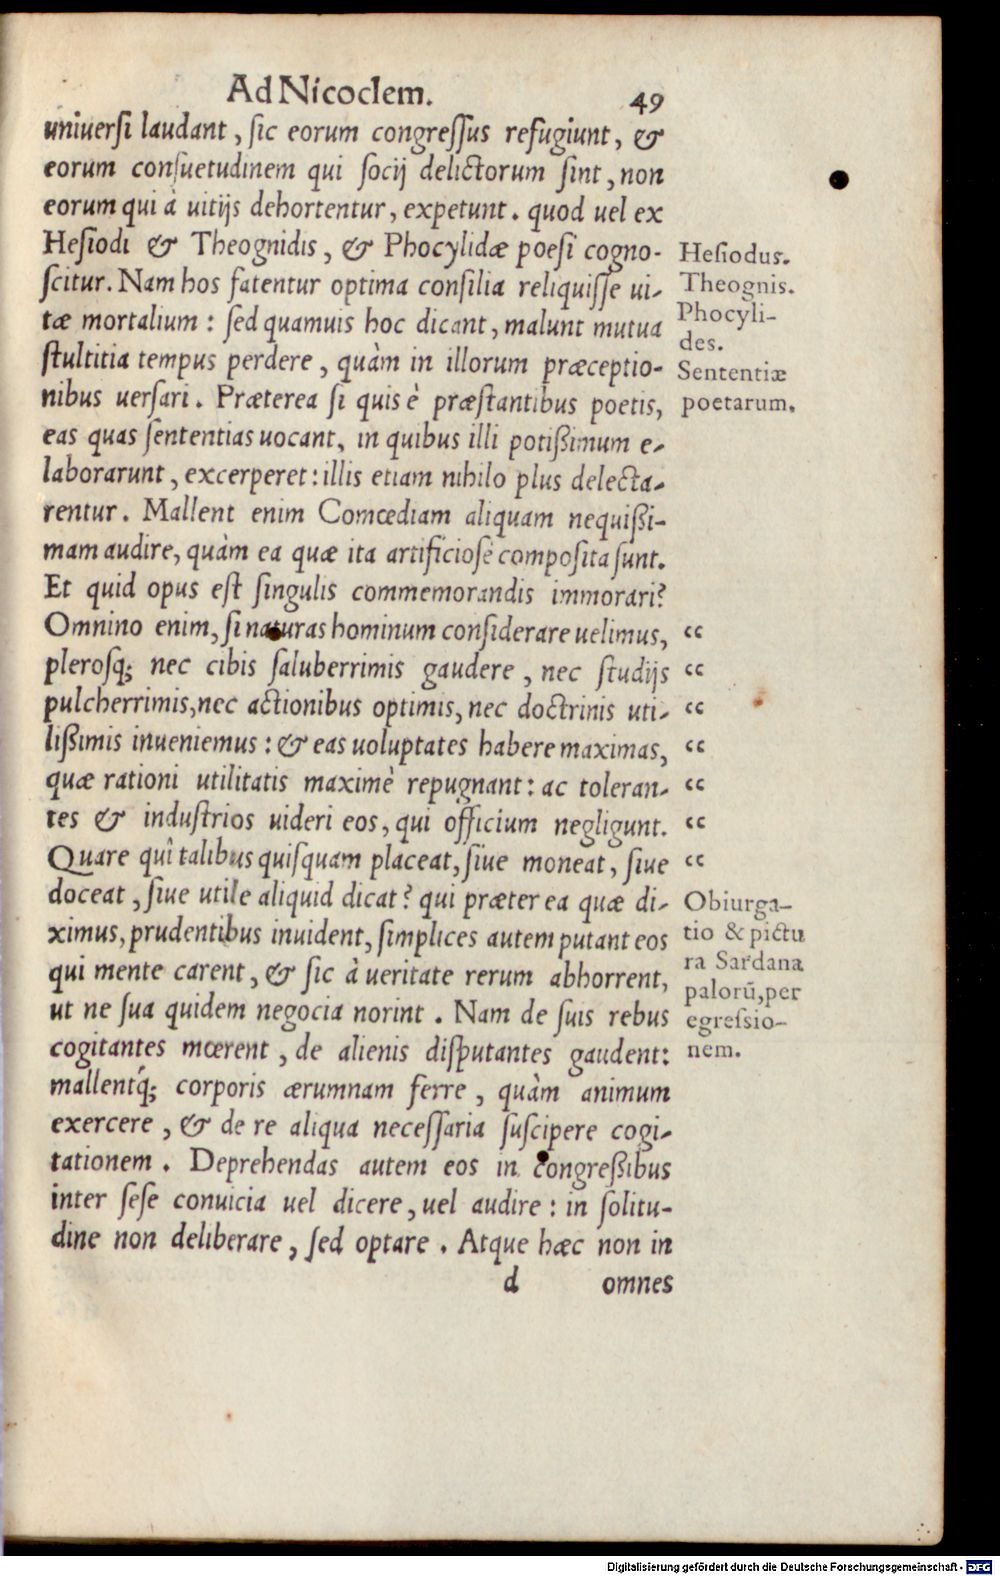 Ad Nicoclem. 49
uniuersi laudant, sic eorum congressus refugiunt, &
eorum consuetudinem qui socij delictorum sint, non
eorum qui à uitijs dehortentur, expetunt. quod uel ex
Hesiodi & Theognidis, & Phocylidæ poesi cogno-
scitur. Nam hos fatentur optima consilia reliquisse ui-
tæ mortalium: sed quamuis hoc dicant, malunt mutua
stultitia tempus perdere, quàm in illorum præceptio-
nibus uersari. Præterea si quis è præstantibus poetis,
eas quas sententias uocant, in quibus illi potißimum e-
laborarunt, excerperet: illis etiam nihilo plus delecta-
rentur. Mallent enim Comœdiam aliquam nequißi-
mam audire, quàm ea quæ ita artificiosè composita sunt.
Et quid opus est singulis commemorandis immorari?
Omnino enim, si naturas hominum considerare uelimus,
plerosq; nec cibis saluberrimis gaudere, nec studijs
pulcherrimis, nec actionibus optimis, nec doctrinis uti-
lißimis inueniemus: & eas uoluptates habere maximas,
quæ rationi utilitatis maximè repugnant: ac toleran-
tes & industrios uideri eos, qui officium negligunt.
Quare quî talibus quisquam placeat, siue moneat, siue
doceat, siue utile aliquid dicat? qui præter ea quæ di-
ximus, prudentibus inuident, simplices autem putant eos
qui mente carent, & sic à ueritate rerum abhorrent,
ut ne sua quidem negocia norint. Nam de suis rebus
cogitantes mœrent, de alienis disputantes gaudent:
mallentq́; corporis ærumnam ferre, quàm animum
exercere, & de re aliqua necessaria suscipere cogi-
tationem. Deprehendas autem eos in congreßibus
inter sese conuicia uel dicere, uel audire: in solitu-
dine non deliberare, sed optare. Atque hæc non in
d omnes
Hesiodus.
Theognis.
Phocyli-
des.
Sententiæ
poetarum.
“
“
“
“
“
“
“
Obiurga-
tio & pictu
ra Sardana
palorũ, per
egressio-
nem.
Digitalisierung gefördert durch die Deutsche Forschungsgemeinschaft - DFG